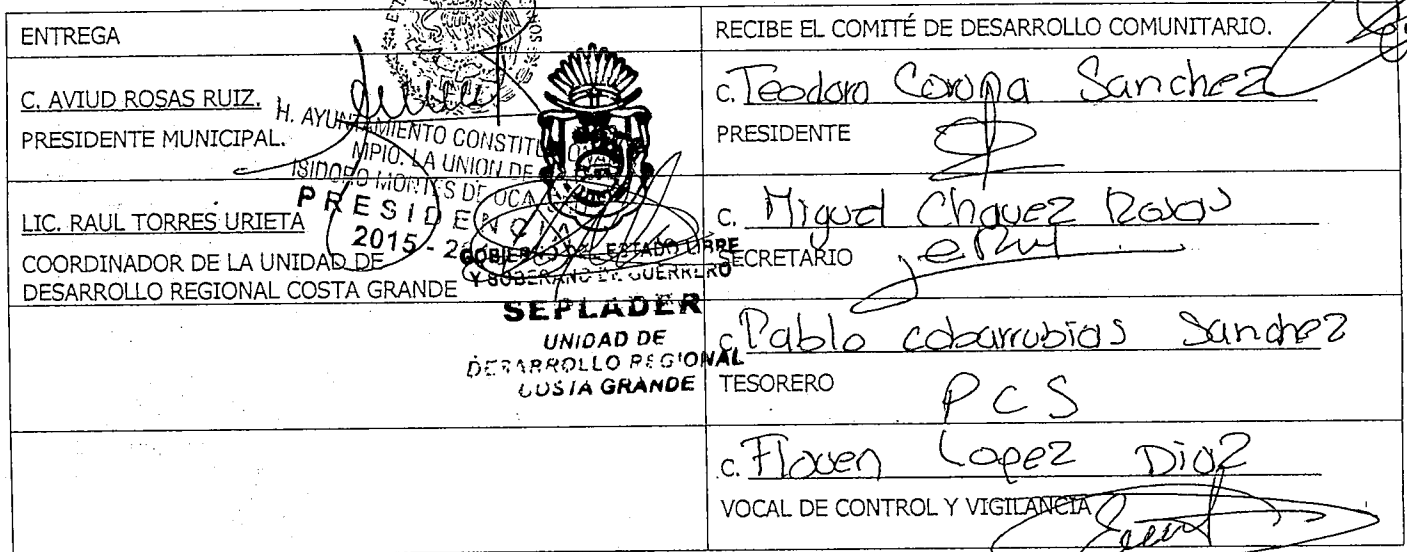 ENTREGA
C. AVIUD ROSAS RUIZ.
PRESIDENTE MUNICIPAL.
H. AYUNTAMIENTO CONSTITUCIONAL
MPIO. LA UNION DE
ISIDORO MONTES DE OCA
PRESIDENCIA
2015 - 2
LIC. RAUL TORRES URIETA
COORDINADOR DE LA UNIDAD DE
DESARROLLO REGIONAL COSTA GRANDE
GOBIERNO DEL ESTADO LIBRE
Y SOBERANO DE GUERRERO
SEPLADER
UNIDAD DE
DESARROLLO REGIONAL
COSTA GRANDE
RECIBE EL COMITÉ DE DESARROLLO COMUNITARIO.
C. Teodoro Corona Sanchez
PRESIDENTE
C. Miguel Chavez Rosas
SECRETARIO
C. Pablo cobarrubias Sanchez
TESORERO
PCS
C. Lopez Diaz
VOCAL DE CONTROL Y VIGILANCIA